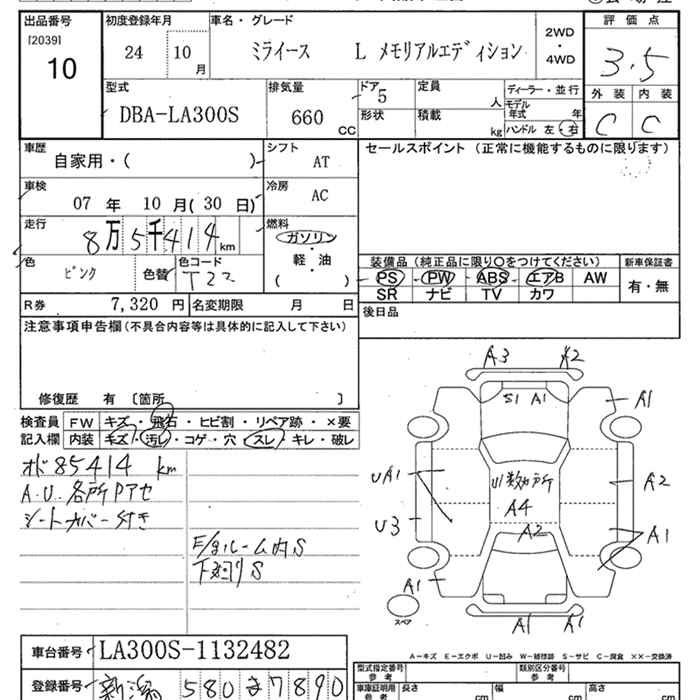 出品番号 初度登録年月 車名・グレード 評価点
[2039] 10
24 10月 ミライース L メモリアルエディション 2WD・4WD 3.5
型式 排気量 ドア 5 定員 人 ディーラー・並行 外装 内装
DBA-LA300S 660 CC 形状 積載 kg モデル年式 年 C C
ハンドル 左・右
車歴 シフト セールスポイント (正常に機能するものに限ります)
自家用・( ) AT
車検 冷房
07 年 10 月 ( 30 日) AC
走行 燃料
8万5千414 km ガソリン・軽・油
色 色替 色コード ( )
ピンク T22
装備品 (純正品に限り〇をつけてください) 新車保証書
PS PW ABS エアB AW 有・無
SR ナビ TV カワ
R券 7,320 円 名変期限 月 日 後日品
注意事項申告欄 (不具合内容等は具体的に記入して下さい)
修復歴 有 〔箇所 〕
検査員 FW キズ・飛石・ヒビ割・リペア跡・×要
記入欄 内装 キズ・汚レ・コゲ・穴・スレ・キレ・破レ
オド85414 km
A.U.各所Pアセ
シートカバー付き
ルーム内S
下廻りS
A3 A2
S1 A1 A1
UA1 U1数ヶ所 A2
A4
U3 A2 A1
A1
スペア A1 A1
A-キズ E-エクボ U-凹み W-補修跡 S-サビ C-腐食 ××-交換済
車台番号 LA300S-1132482
登録番号 新潟 580 ま 7890
型式指定番号 参考 類別区分番号 参考
車庫証明用 参考 長さ cm 幅 cm 高さ cm